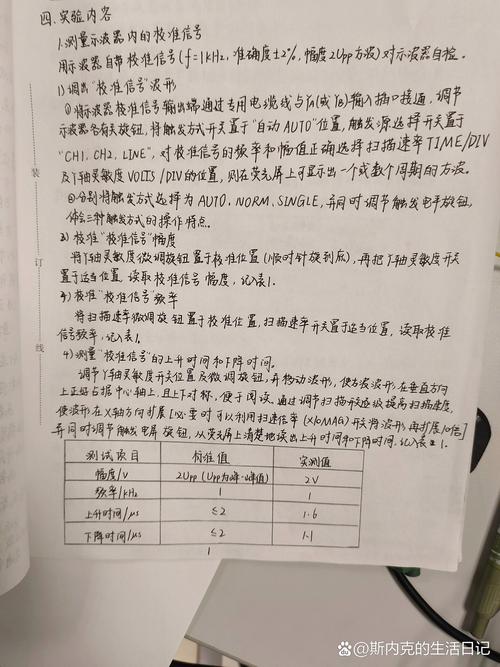 四.实验内容
1.测量示波器内的校准信号
用示波器自带校准信号(f=1kHz,准确度±2%,幅度2Upp方波)对示波器自检。
1)调出“校准信号”波形
①将示波器校准信号输出端通过专用电缆线与Y1(或Y2)输入插口接通,调节
示波器各有关旋钮,将触发方式开关置于“自动AUTO”位置,触发源选择开关置于
“CH1.CH2,LINE”,对校准信号的频率和幅值正确选择扫描速率TIME/DIV
及Y轴灵敏度VOLTS/DIV的位置,则在荧光屏上可显示出一个或数个周期的方波。
②分别将触发方式选择为AUTO、NORM、SINGLE,并同时调节触发电平旋钮,
体会三种触发方式的操作特点。
2)校准“校准信号”幅度
将Y轴灵敏度微调旋钮置于校准位置(顺时针旋到底),再把Y轴灵敏度开关
置于适当位置,读取校准信号幅度,记入表1。
3)校准“校准信号”频率
将扫描速率微调旋钮置于校准位置,扫描速率开关置于适当位置,读取校准
信号频率,记入表1。
4)测量“校准信号”的上升时间和下降时间。
调节Y轴灵敏度开关位置及微调旋钮,并移动波形,使方波波形在垂直方向
上正好占据中心轴上,且上下对称,便于阅读。通过调节扫描开关逐级提高扫描速度,
使波形在X轴方向扩展[必要时可以利用扫速倍率(X10MAG)开关将波形再扩展10倍]
并同时调节触发电屏旋钮,从荧光屏上清楚地读出上升时间和下降时间,记入表1。
测试项目 标准值 实测值
幅度/V 2Upp(Upp为峰-峰值) 2V
频率/kHz 1 1
上升时间/μs ≤2 1.6
下降时间/μs ≤2 1.1
1
装
订
线
斯内克的生活日记